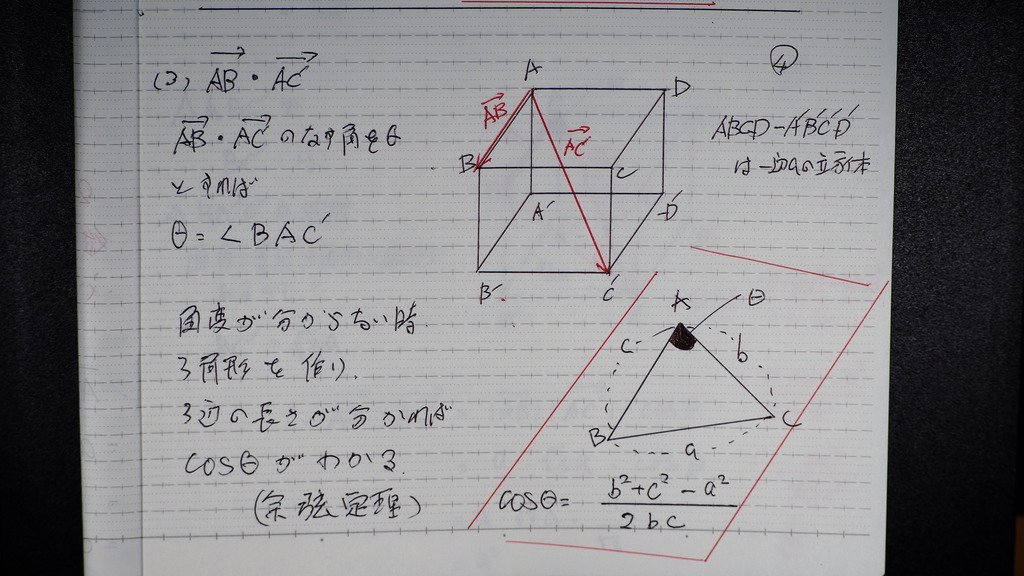 (2) AB→・AC'→
④
AB→・AC'→のなす角をθ
とすれば
θ=∠BAC'
A
D
B
C
A'
D'
B'
C'
AB→
AC'→
ABCD-A'B'C'D'
は一辺aの立方体
角度が分からない時
3角形を作り
3辺の長さが分かれば
cosθがわかる
(余弦定理)
A
θ
c
b
B
C
a
cosθ= b²+c²-a² / 2bc